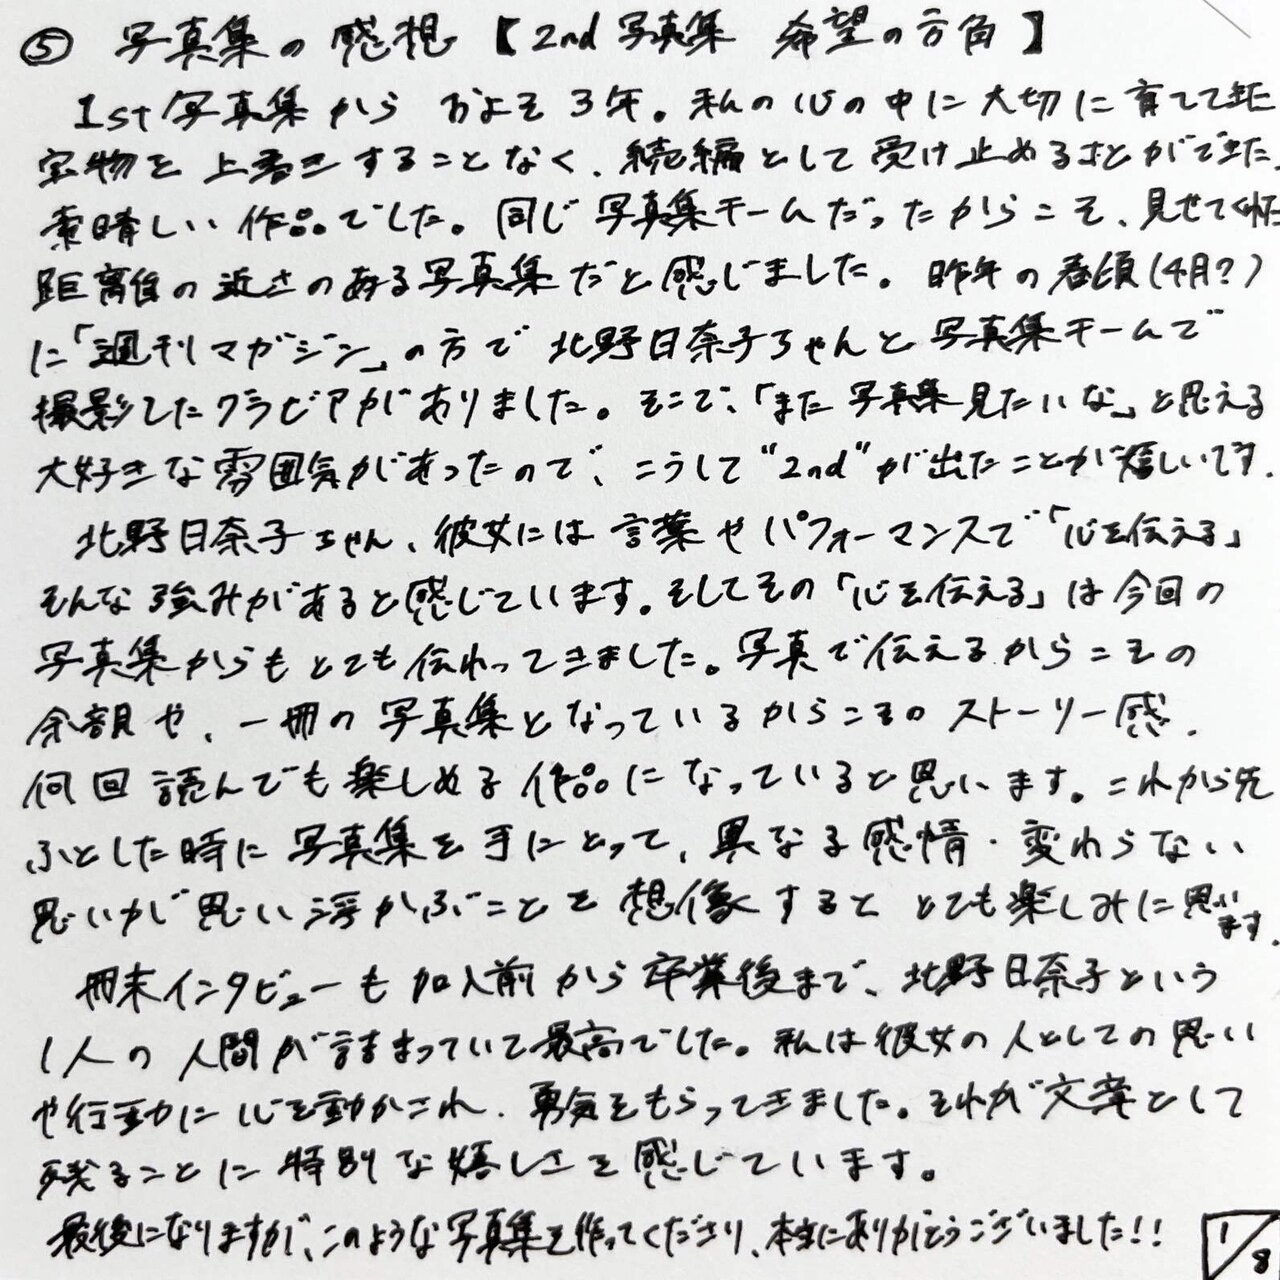 ⑤ 写真集の感想【2nd 写真集 希望の方角】
1st写真集から およそ3年。私の心の中に大切に育てて来た
宝物を上書きすることなく、続編として受け止めることができた、
素晴しい作品でした。同じ写真集チームだったからこそ、見せてくれた
距離 の近さのある写真集だと感じました。昨年の春頃(4月?)
に「週刊マガジン」の方で 北野日奈子ちゃんと写真集チームで
撮影したグラビアがありました。そこで、「また写真集見たいな」と思える
大好きな雰囲気があったので、こうして"2nd"が出たことが嬉しいです。
北野日奈子ちゃん、彼女には言葉やパフォーマンスで「心を伝える」
そんな強みがあると感じています。そしてその「心を伝える」は今回の
写真集からもとても伝わってきました。写真で伝えるからこその
余韻や、一冊の写真集となっているからこそのストーリー感。
何回読んでも楽しめる作品になっていると思います。これから先
ふとした時に写真集を手にとって、異なる感情・変わらない
思いが思い浮かぶことを想像するととても楽しみに思います。
冊末インタビューも加入前から卒業後まで、北野日奈子という
1人の人間が詰まっていて最高でした。私は彼女の人としての思い
や行動に心を動かされ、勇気をもらってきました。それが文章として
残ることに特別な嬉しさを感じています。
最後になりますが、このような写真集を作ってくださり、本当にありがとうございました!!
1/8